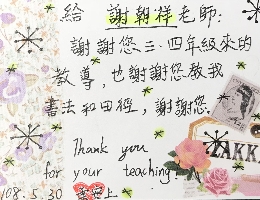 給 謝朝祥老師:
謝謝您三、四年級來的
教導,也謝謝您教我
書法和田徑,謝謝您.
Thank you
for your teaching!
ZAKK
108.5.30
上